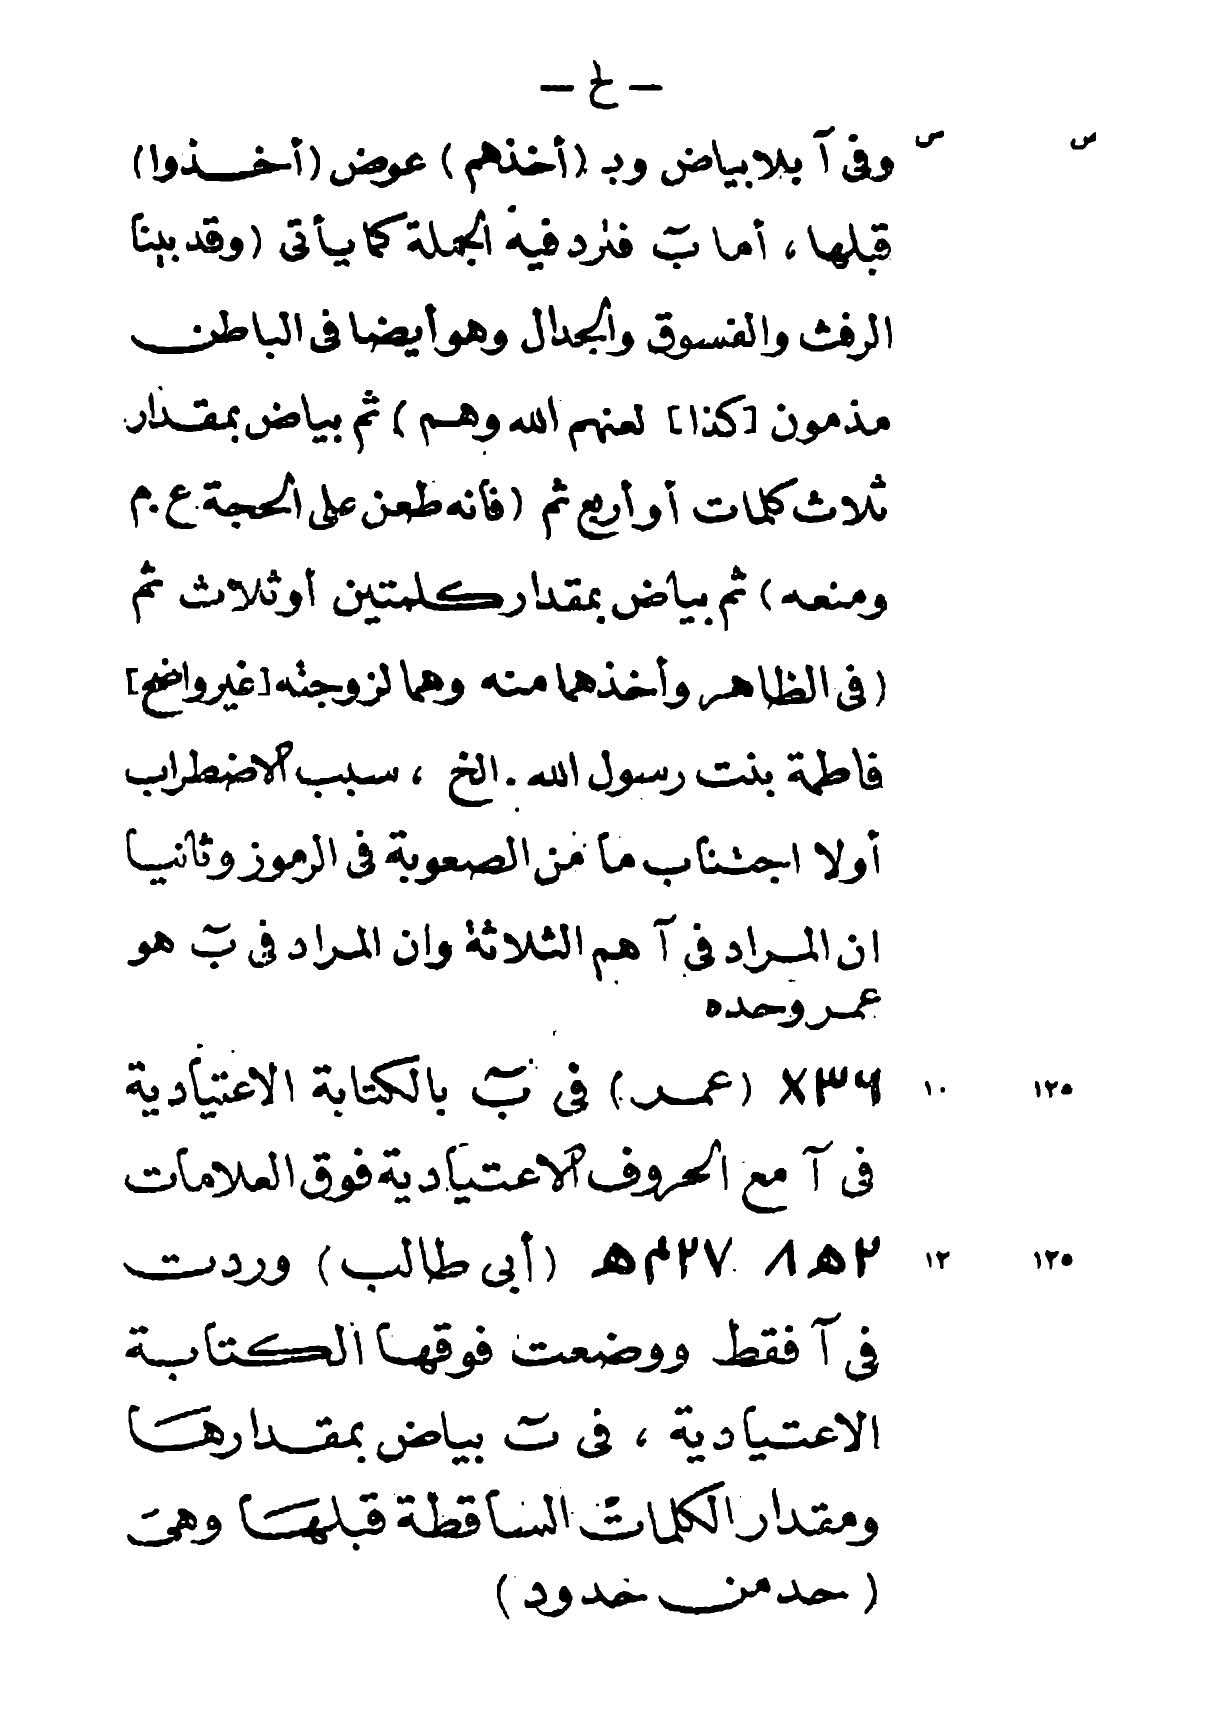 — غ —
ص ص وفى آ بلا بياض وبـ (أخذهم) عوض (أخذوا)
قبلها، أما بَ فترد فيه الجملة كما يأتى (وقد بينا
الرفث والفسوق والجدال وهو أيضا فى الباطن
مذمون [كذا] لعنهم الله وهم) ثم بياض بمقدار
ثلاث كلمات أو أربع ثم (فأنه طعن على الحجة ع.م
ومنعه) ثم بياض بمقدار كلمتين أو ثلاث ثم
(فى الظاهر وأخذهما منه وهما لزوجته [غير واضح]
فاطمة بنت رسول الله . الخ ، سبب الاضطراب
أولا اجتناب ما من الصعوبة فى الرموز وثانيا
ان المراد فى آ هم الثلاثة وان المراد فى بَ هو
عمر وحده
١٢٥ ١٠ (عمر) فى بَ بالكتابة الاعتيادية
فى آ مع الحروف الاعتيادية فوق العلامات
١٢٥ ١٢ (أبى طالب) وردت
فى آ فقط ووضعت فوقها الكتابة
الاعتيادية ، فى بَ بياض بمقدارها
ومقدار الكلمات الساقطة قبلها وهى
(حد من حدود)